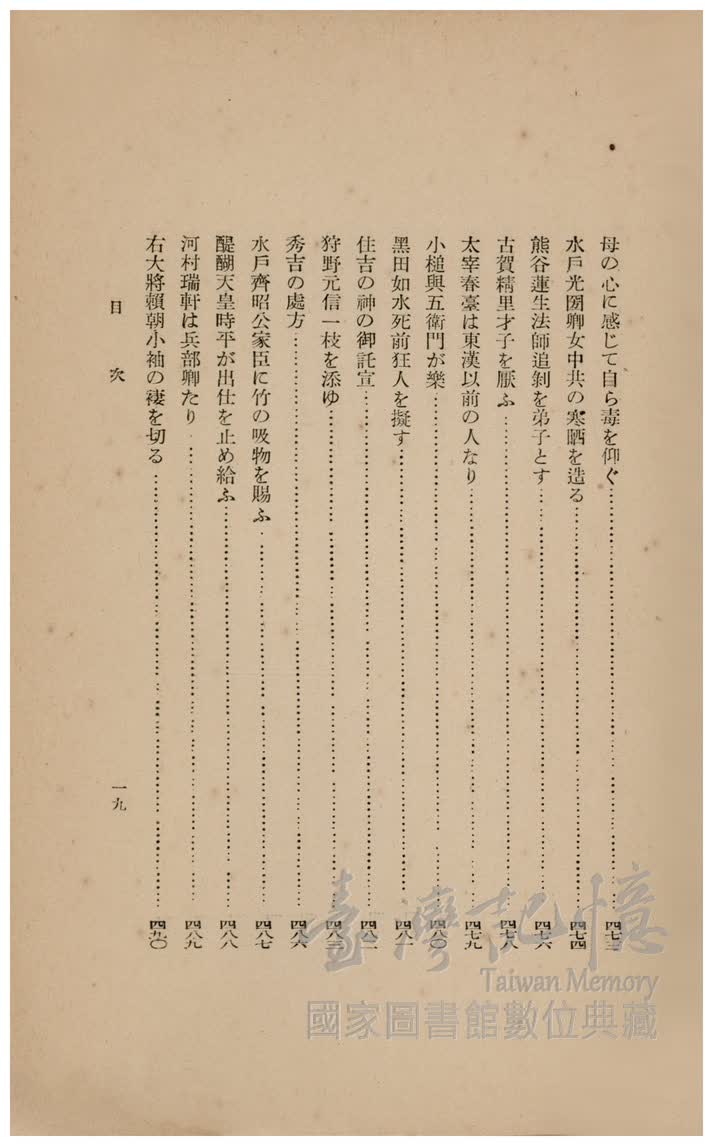 母の心に感じて自ら毒を仰ぐ……四七三
水戶光圀卿女中共の寒晒を造る……四七四
熊谷蓮生法師追剝を弟子とす……四七六
古賀精里才子を厭ふ……四七八
太宰春臺は東漢以前の人なり……四七九
小槌與五衛門が樂……四八〇
黑田如水死前狂人を擬す……四八一
住吉の神の御託宣……四八二
狩野元信一枝を添ゆ……四八三
秀吉の處方……四八六
水戶齊昭公家臣に竹の吸物を賜ふ……四八七
醍醐天皇時平が出仕を止め給ふ……四八八
河村瑞軒は兵部卿たり……四八九
右大將賴朝小袖の褄を切る……四九〇
目次
一九
臺灣記憶
Taiwan Memory
國家圖書館數位典藏